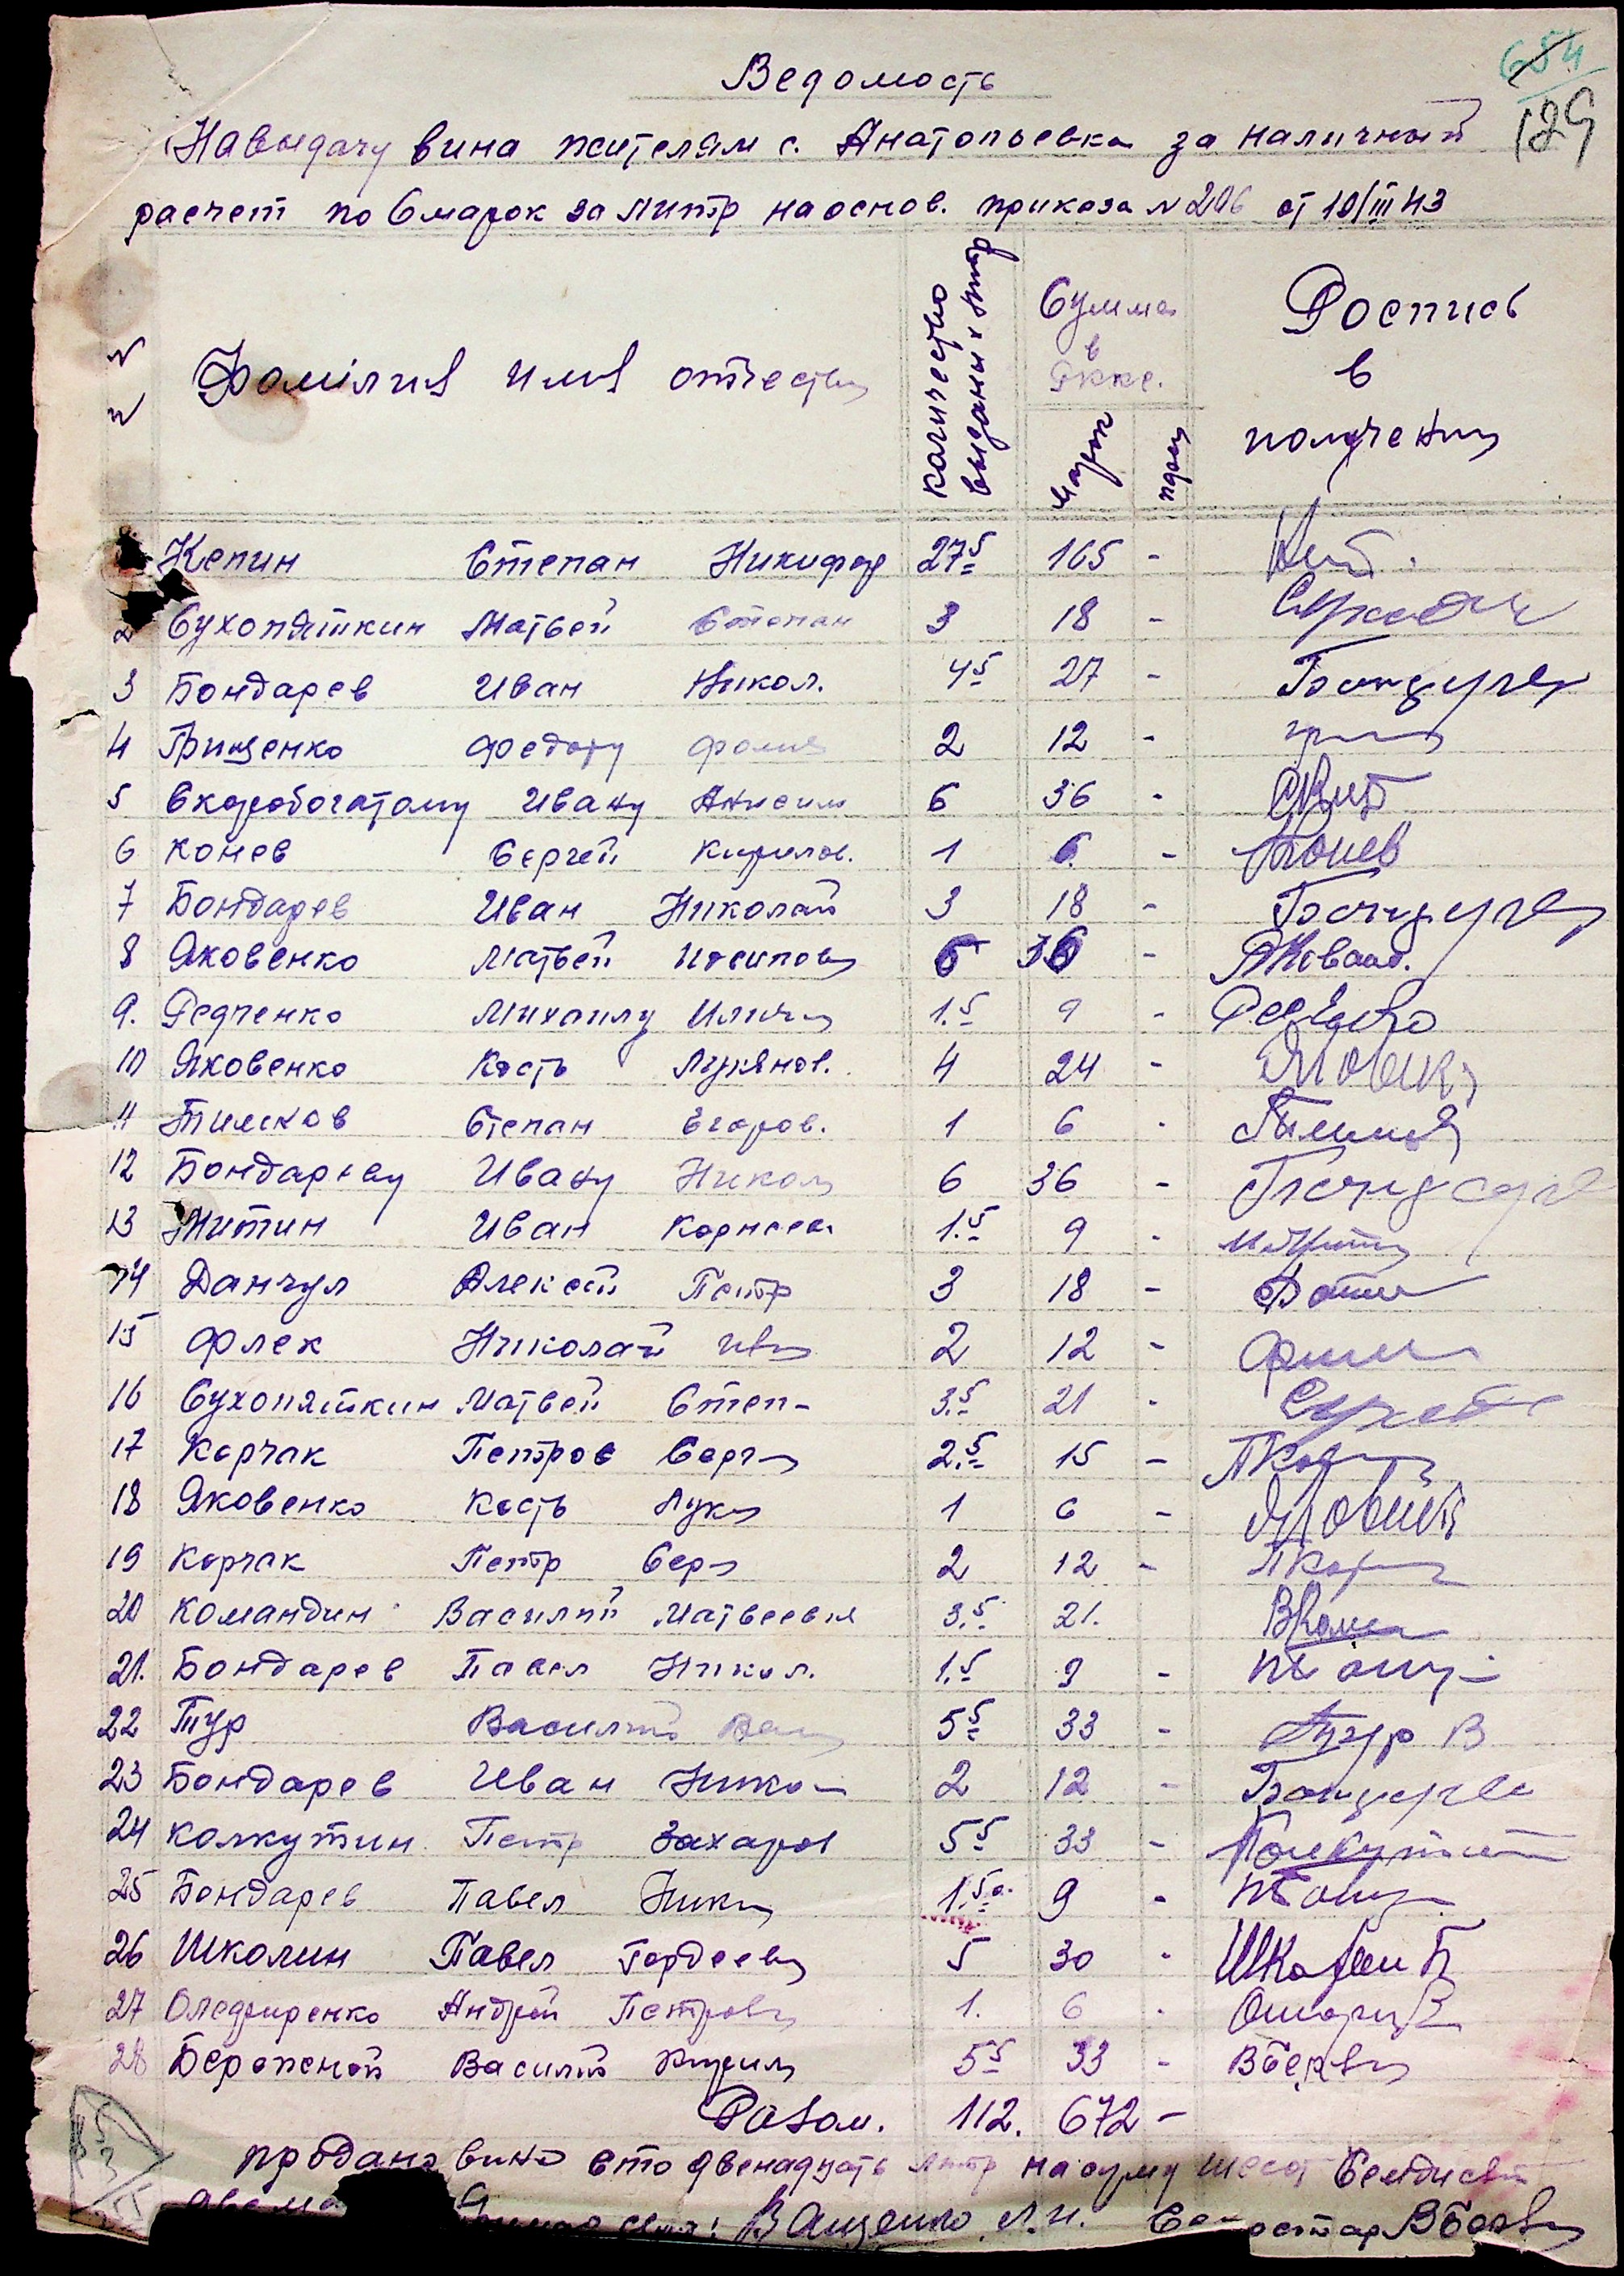 654
129
Ведомость
На выдачу вина жителям с. Анатольевка за наличный
расчет по 6 марок за литр на основ. приказа N 206 от 10/III 43
N
N
Фамілия имя отчество
Количество выданных литр
Сумма
в
Рккс.
Марок
пфен
Роспись
в
получении
Кепин Степан Никифор 27 5 165 -
2 Сухопяткин Матвей Степан 3 18 -
3 Бондарев Иван Никол. 4 5 27 - Бондарев
4 Грищенко Федору Фомич 2 12 -
5 Скоробогатому Ивану Анисим 6 36 -
6 Конев Сергей Кирилов. 1 6 - Конев
7 Бондарев Иван Николай 3 18 - Бондарев
8 Яковенко Матвей Иосипов 6 36 -
9. Редченко Михаилу Илич 1.5 9 -
10 Яковенко Кость Лукянов. 4 24 -
11 Тимков Степан Егоров. 1 6 -
12 Бондареву Ивану Никол 6 36 -
13 Житин Иван Корнеев 1.5 9 -
14 Данчул Алексей Петр 3 18 -
15 Флек Николай Ив 2 12 -
16 Сухопяткин Матвей Степ- 3.5 21 -
17 Корчак Петров Серг 2.5 15 -
18 Яковенко Кость Лук 1 6 -
19 Корчак Петр Сер 2 12 -
20 Командин Василий Матвеевич 3.5 21.
21. Бондарев Павел Никол. 1.5 9 -
22 Тур Василий Вас 5 5 33 - Тур В
23 Бондарев Иван Нико- 2 12 - Бондарев
24 Колкутин Петр Захаров 5 5 33 - Колкутин
25 Бондарев Павел Ник 1.5 9 -
26 Школин Павел Гордеев 5 30 - Школин П
27 Олефиренко Андрей Петров 1. 6 -
28 Береженой Василий Кирил 5 5 33 -
Разом. 112. 672 -
продано вино сто двенадцать литр на суму шесот семдисят
Ващенко Л.И. Секретар